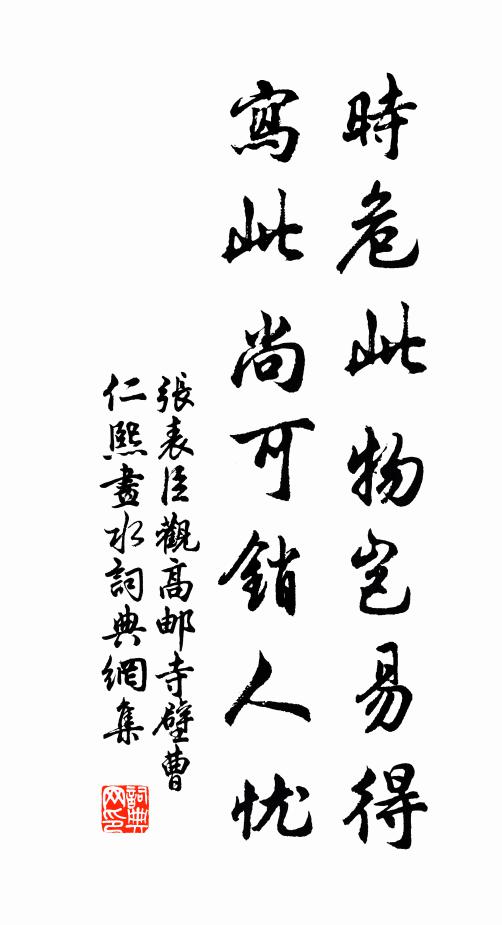 時危此物岂易得
寫此尚可銷人忧
張表臣觀高邮寺壁曹
仁熙畫水詞典網集
詞典网印